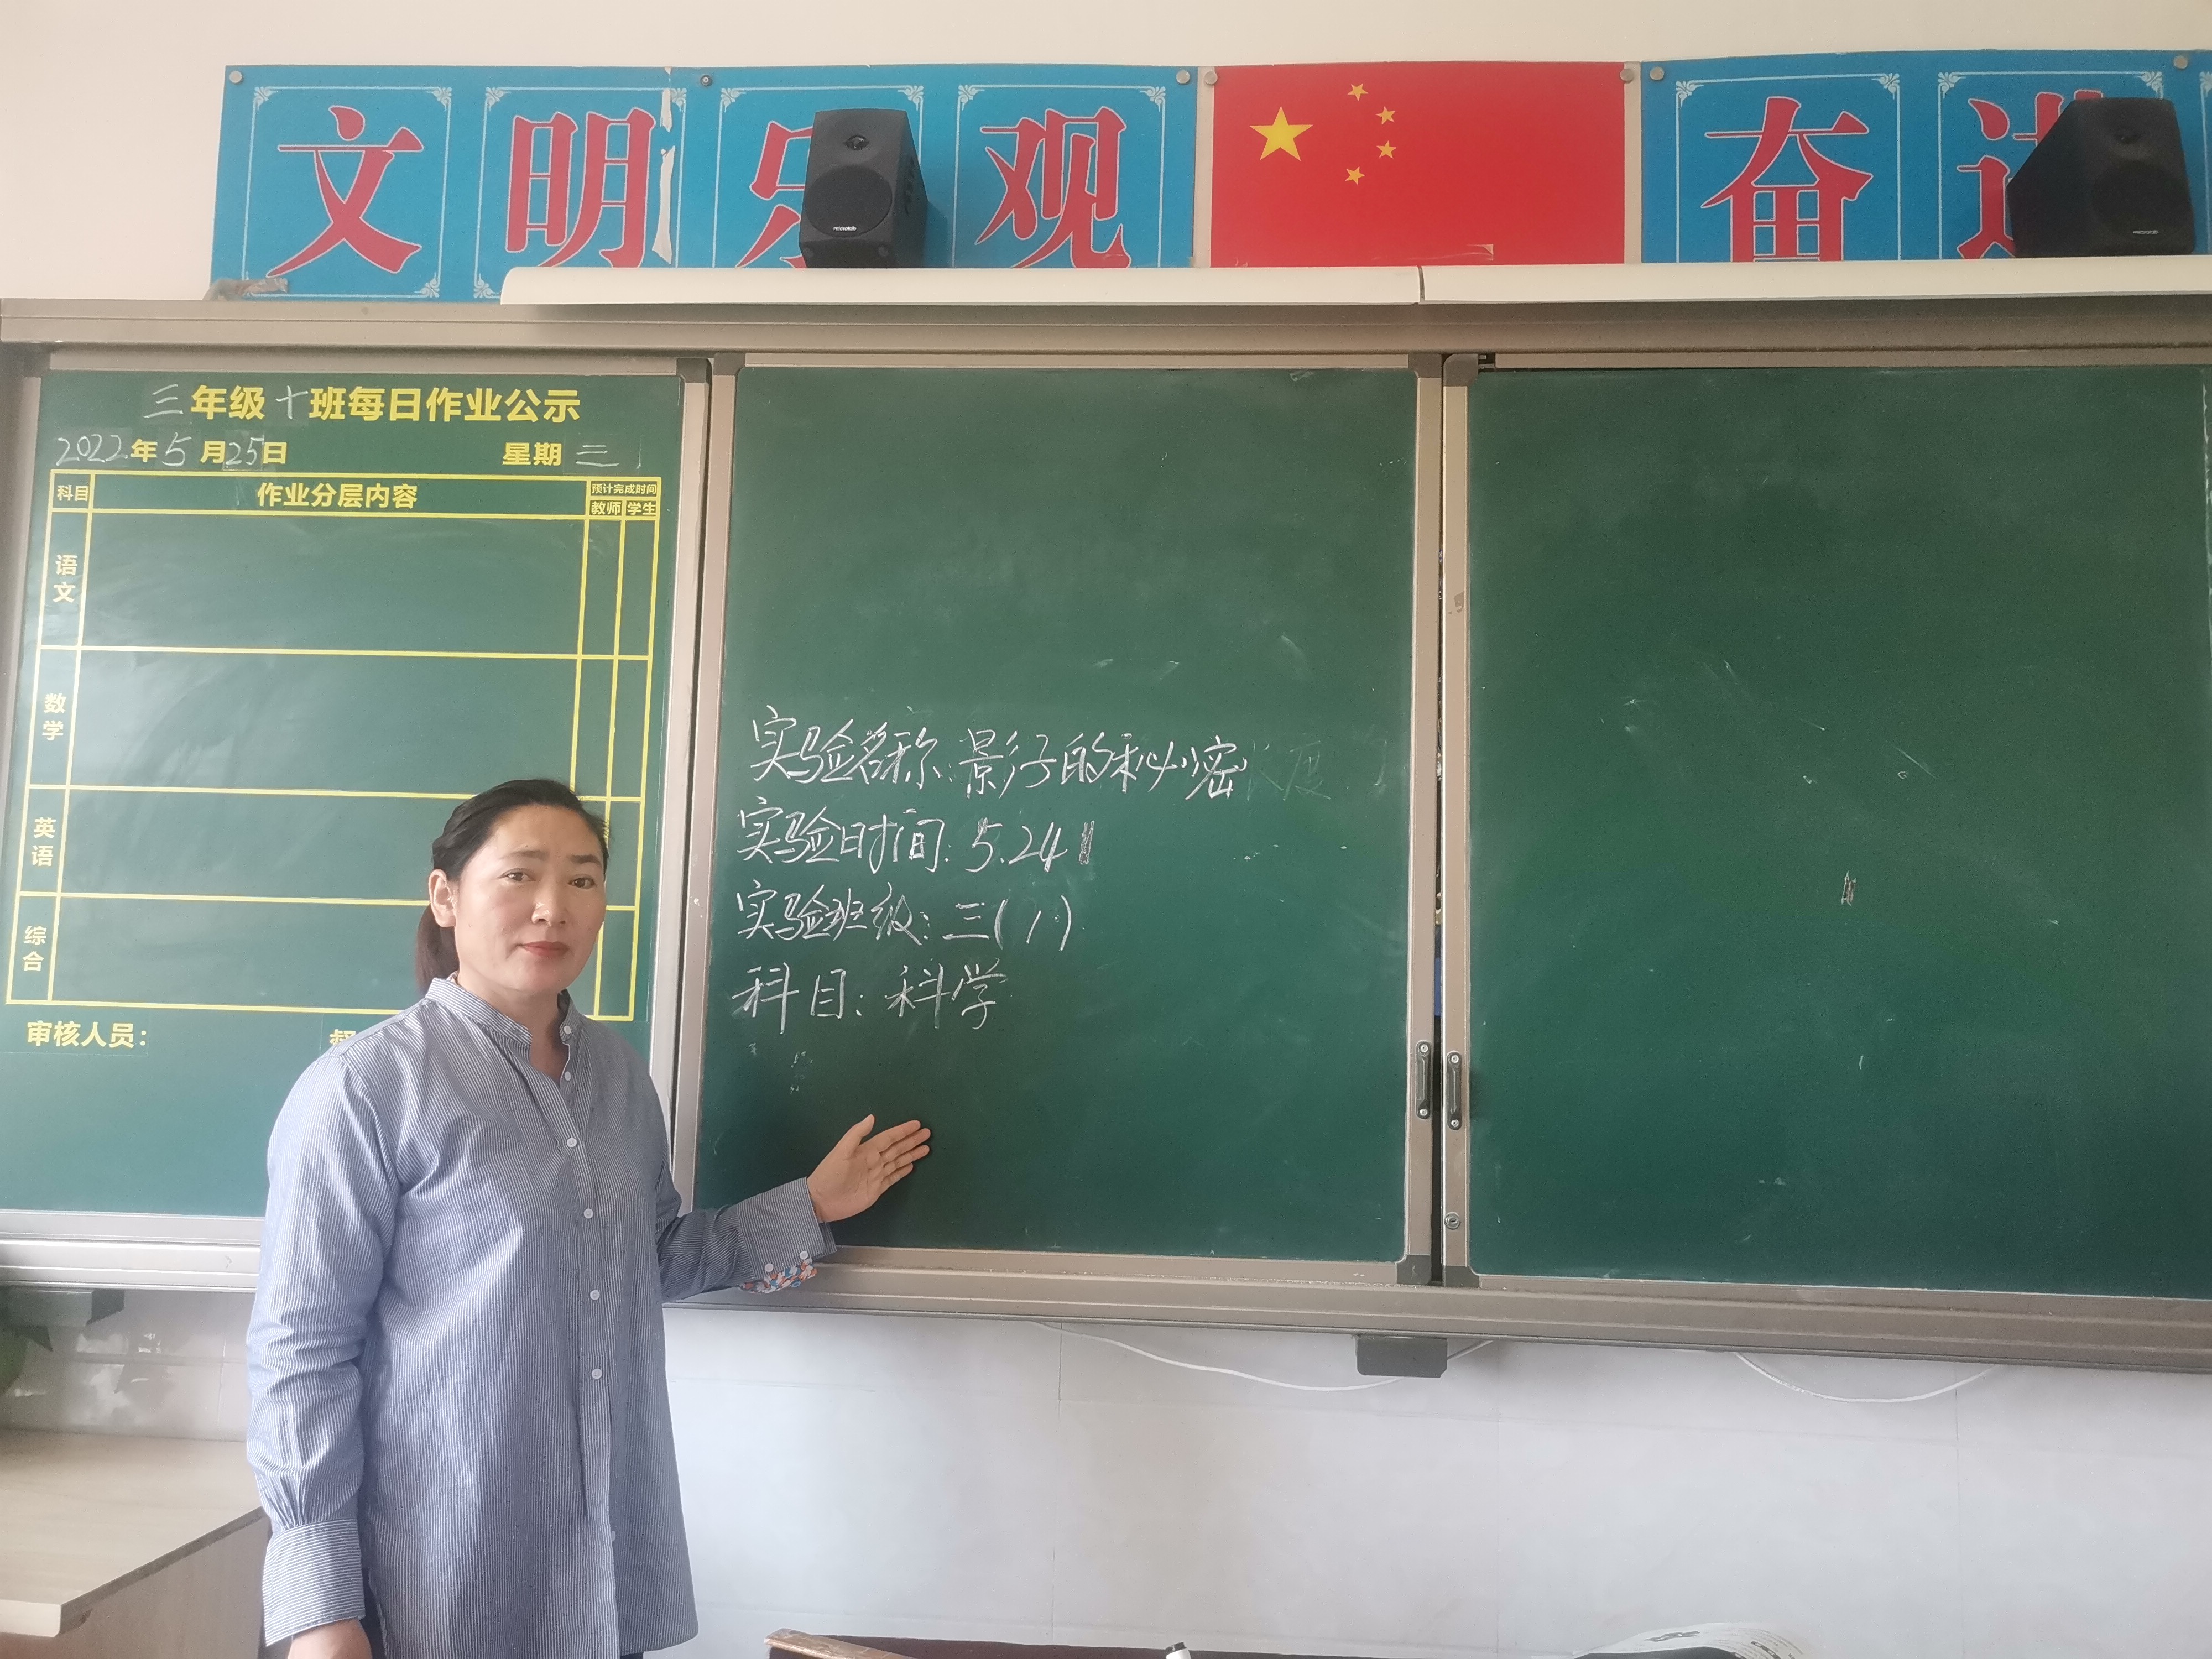 文明乐观
奋进
microlab
microlab
三年级十班每日作业公示
2022年5月25日 星期三
科目 作业分层内容 预计完成时间
教师 学生
语文
数学
英语
综合
审核人员：
实验名称：影子的秘密
实验时间：5.24
实验班级：三（1）
科目：科学